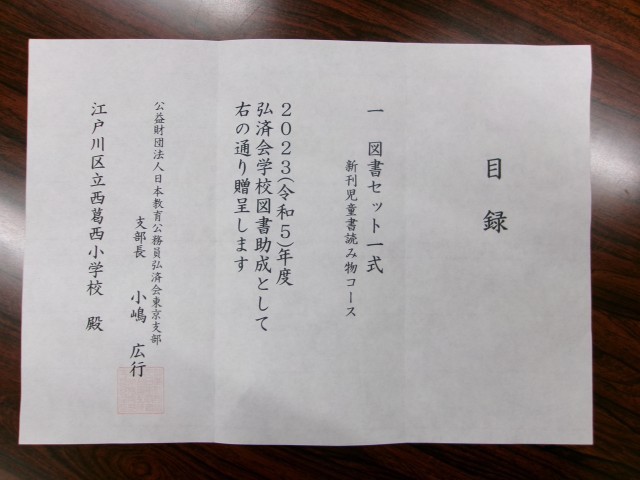 目録
一 図書セット一式
新刊児童書読み物コース
2023(令和5)年度
弘済会学校図書助成として
右の通り贈呈します
公益財団法人日本教育公務員弘済会東京支部
支部長 小嶋 広行
江戸川区立西葛西小学校 殿